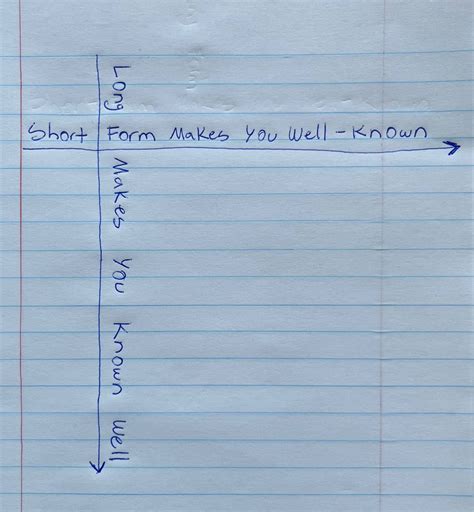 Short Form Makes You Well-Known
Long Makes You Known Well